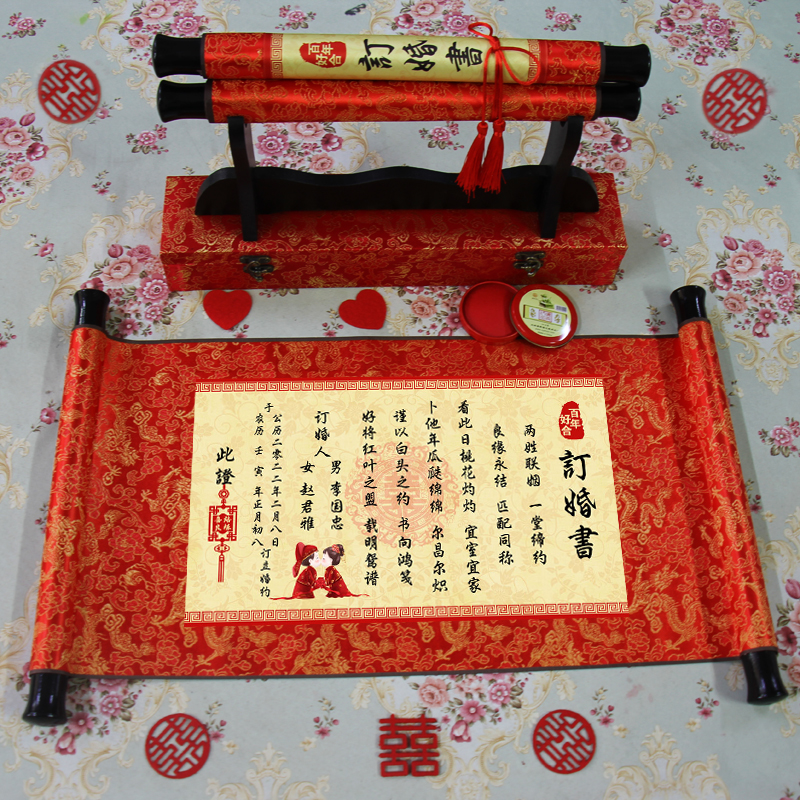 百年好合
訂婚書
百年好合
訂婚書
两姓联姻 一堂缔约
良缘永结 匹配同称
看此日桃花灼灼 宜室宜家
卜他年瓜瓞绵绵 尔昌尔炽
谨以白头之约 书向鸿笺
好将红叶之盟 载明鸳谱
订婚人
男 李国忠
女 赵君雅
于 公历二零二二年二月八日 订立婚约
农历 壬寅 年正月初八
此證
囍
囍
囍
囍
囍